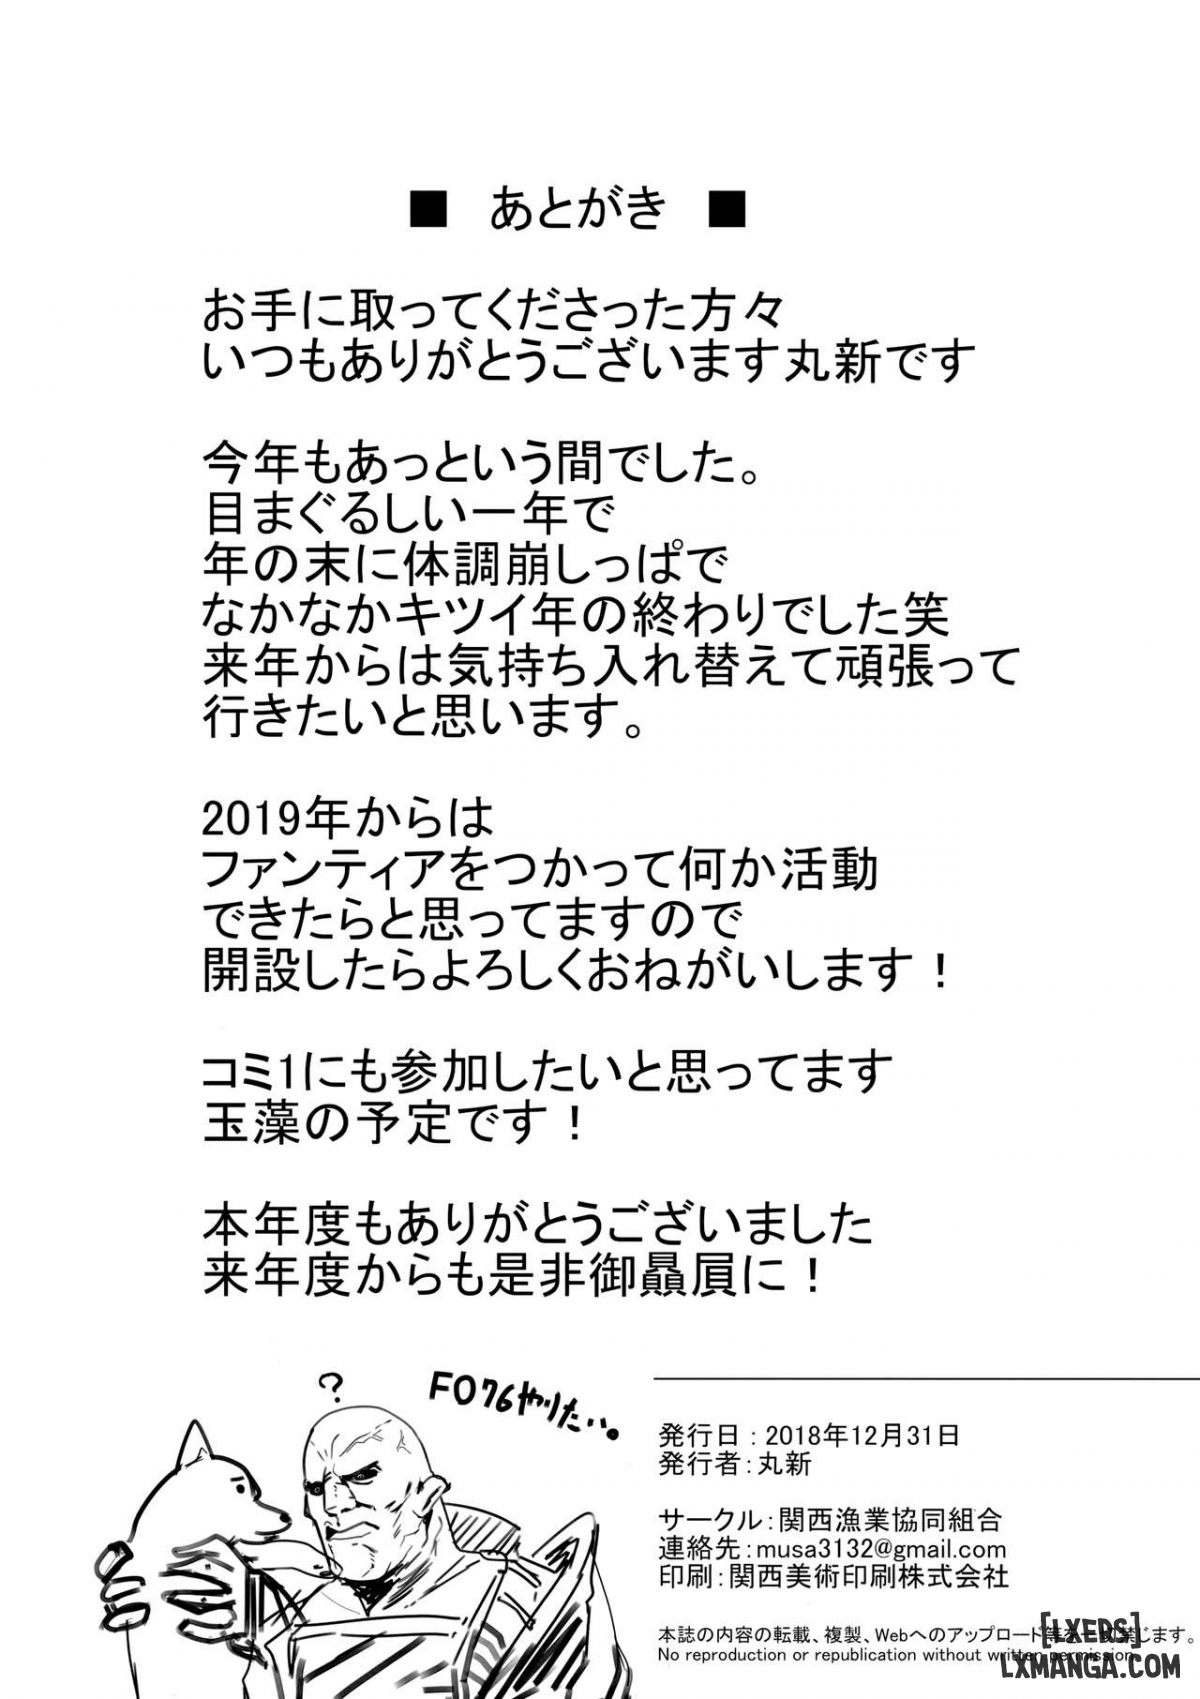 ■ あとがき ■
お手に取ってくださった方々
いつもありがとうございます丸新です
今年もあっという間でした。
目まぐるしい一年で
年の末に体調崩しっぱで
なかなかキツイ年の終わりでした笑
来年からは気持ち入れ替えて頑張って
行きたいと思います。
2019年からは
ファンティアをつかって何か活動
できたらと思ってますので
開設したらよろしくおねがいします！
コミ1にも参加したいと思ってます
玉藻の予定です！
本年度もありがとうございました
来年度からも是非御贔屓に！
?
FO76やりたい。
発行日：2018年12月31日
発行者：丸新
サークル：関西漁業協同組合
連絡先：musa3132@gmail.com
印刷：関西美術印刷株式会社
本誌の内容の転載、複製、Webへのアップロード等を禁じます。
No reproduction or republication without written permission.
[LXERS]
LXMANGA.COM